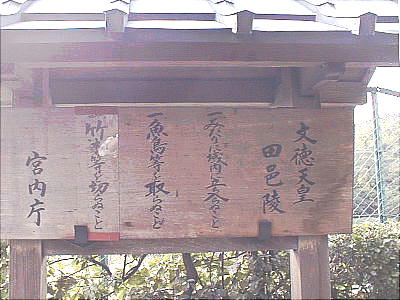 文徳天皇
田邑陵
一みだりに域内に立入らぬこと
一魚鳥等を取らぬこと
一竹木等を切らぬこと
宮内庁